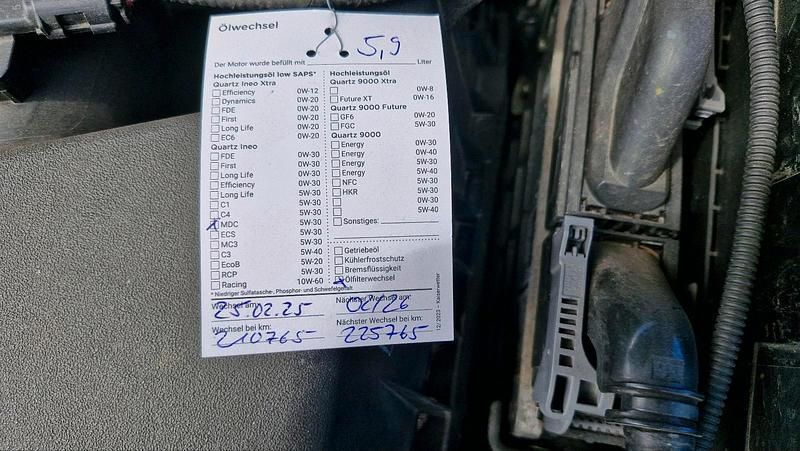 Ölwechsel
Der Motor wurde befüllt mit 5,9 Liter
Hochleistungsöl low SAPS*
Quartz Ineo Xtra
Efficiency 0W-12
Dynamics 0W-20
FDE 0W-20
First 0W-20
Long Life 0W-20
EC6 0W-20
Quartz Ineo
FDE 0W-30
First 0W-30
Long Life 0W-30
Efficiency 0W-30
Long Life 5W-30
C1 5W-30
C4 5W-30
MDC 5W-30
ECS 5W-30
MC3 5W-30
C3 5W-40
EcoB 5W-20
RCP 5W-30
Racing 10W-60
* Niedriger Sulfatasche-, Phosphor- und Schwefelgehalt
Hochleistungsöl
Quartz 9000 Xtra
0W-8
Future XT 0W-16
Quartz 9000 Future
GF6 0W-20
FGC 5W-30
Quartz 9000
Energy 0W-30
Energy 0W-40
Energy 5W-30
Energy 5W-40
NFC 5W-30
HKR 5W-30
0W-30
5W-40
Sonstiges:
Getriebeöl
Kühlerfrostschutz
Bremsflüssigkeit
Ölfilterwechsel
Wechsel am: 25.02.25
Nächster Wechsel am: 02/26
Wechsel bei km: 210765
Nächster Wechsel bei km: 225765
12/2023 – Kaiserwetter